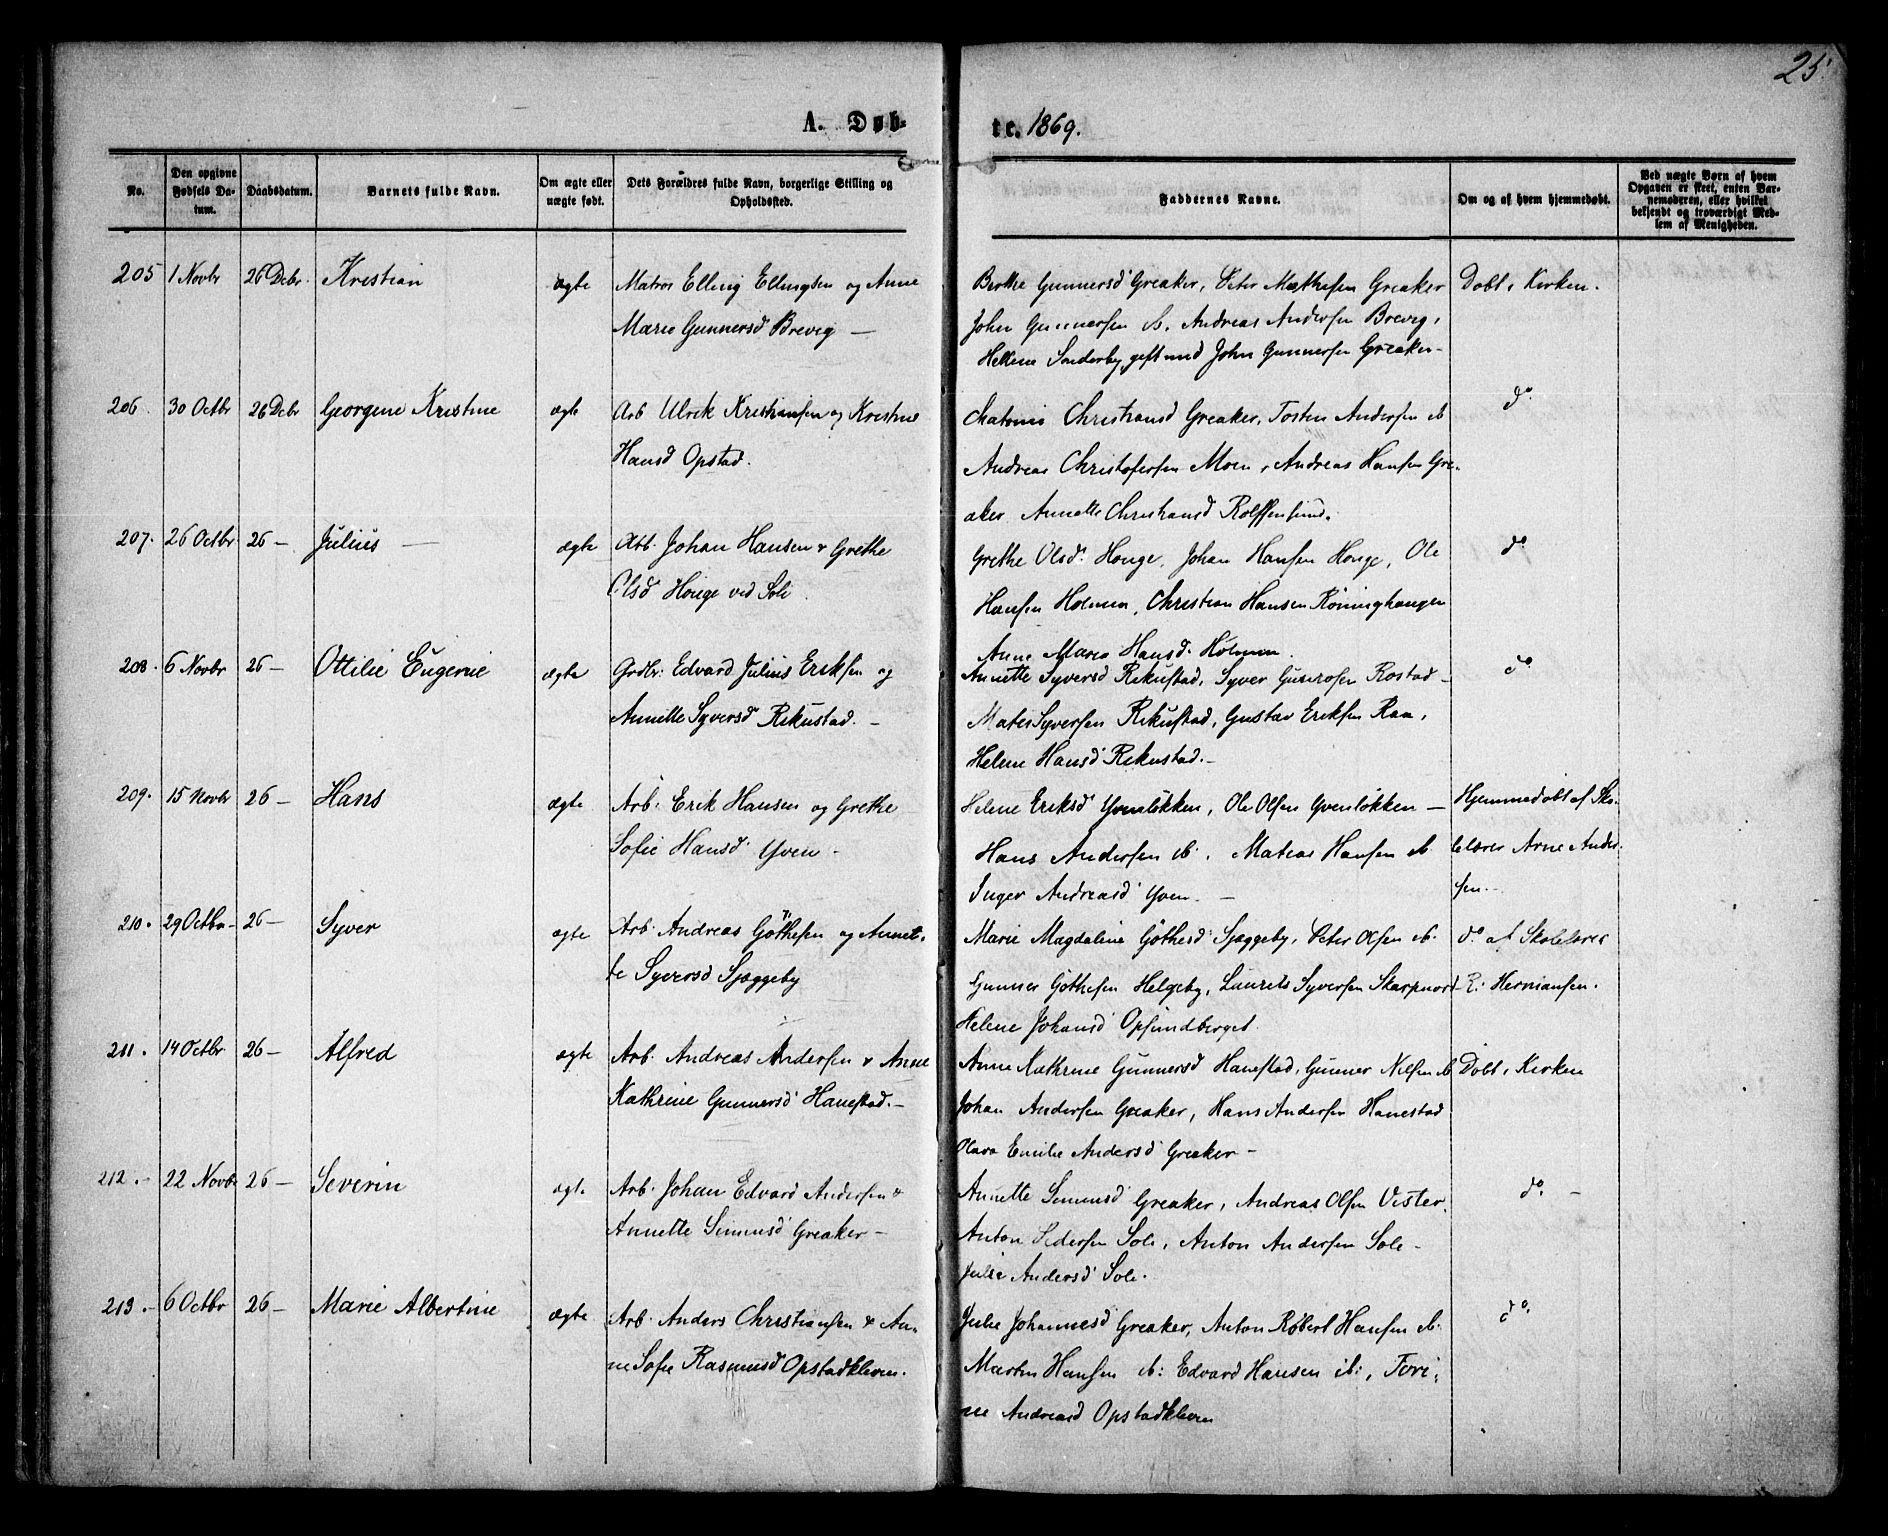 25.
A. Døb-
te. 1869.
No.
Den opgivne
Fødsels Da-
tum.
Daabsdatum.
Barnets fulde Navn.
Om ægte eller
uægte født.
Dets Forældres fulde Navn, borgerlige Stilling og
Opholdssted.
Faddernes Navne.
Om og af hvem hjemmedøbt.
Ved uægte Børn af hvem
Opgaven er skeet, enten Bar-
nemoderen, eller hvilket
bekjendt og troværdigt Med-
lem af Menigheden.
205 1 Novbr 26 Debr. Kristian ægte Matros Elling Ellingsen og Anne
Marie Gunnersd Brevig —
Berthe Gunnersd Greaker, Peter Mathesen Greaker Døbt i Kirken.
John Gunnersen ib. Andreas Andersen Brevig,
Hellene Sønderby gift med John Gunnersen Greaker-
206. 30 Octbr 26 Debr Georgine Kristine ægte Arb Ulrik Kristiansen og Kristine
Hansd Opstad.
Christiansd Greaker, Tosten Andersen ib do.
Andreas Christofersen Moen, Andreas Hansen Gre-
aker Annette Christiansd Rolfsensund.
207. 26 Octbr 26 — Julius — ægte Arb. Johan Hansen & Grethe
Olsd Houge ved Soli.
Grethe Olsd. Houge, Johan Hansen Houge, Ole do
Hansen Holmen, Christian Hansen Køninghaugen
Anne Marie Hansd. Holmen.
208. 6 Novbr 26 — Ottilie Eugenie ægte Grdbr: Edvard Julius Eriksen og
Annette Syversd Rikustad. —
Annette Syversd Rikustad, Syver Rostad — do
Mates Syversen Rikustad, Gustav Eriksen Raa,
Helene Hansd Rikustad.-
209. 15 Novbr 26 — Hans ægte Arb: Erik Hansen og Grethe
Sofie Hansd Yven -
Helene Eriksd Yvenløkken, Ole Olsen Yvenløkken — Hjemmedøbt af Sko-
Hans Andersen ib. Matias Hansen ib lelærer Arne Ander-
Inger Andreasd Yven. — sen.-
210. 29 Octbr- 26 — Syver ægte Arb. Andreas Gøthesen og Annet-
te Syversd Sjæggeby
Marie Magdalene Gøthesd Sjæggeby, Peter Olsen ib. do. af Skolelærer
Gunner Gøthesen Helgeby, Laurits Syversen Skarpnord R. Hermansen.
Helene Johansd Opsundberget.
211. 14 Octbr 26 — Alfred ægte Arb. Andreas Andersen & Anne
Kathrine Gunnersd Hanestad.-
Anne Kathrine Gunnersd Hanestad, Gunner Nilsen ib Døbt i Kirken
Johan Andersen Greaker, Hans Andersen Hanestad
Olava Emilie Andersd Greaker —
212. - 22 Novbr 26 — Severin ægte Arb. Johan Edvard Andersen &
Annette Simensd Greaker —
Annette Simensd Greaker, Andreas Olsen Vister. do. -
Anton Pedersen Sole, Anton Andersen Sole -
Julie Andersd Sole.
213. - 6 Octbr 26 — Marie Albertine ægte Arb. Anders Christiansen & An-
ne Sofie Rasmusd Opstadkleven.
Julie Johannesd Greaker, Anton Robert Hansen ib. do.
Martin Hansen ib: Edvard Hansen ib:, Tori-
ne Andreasd Opstadkleven